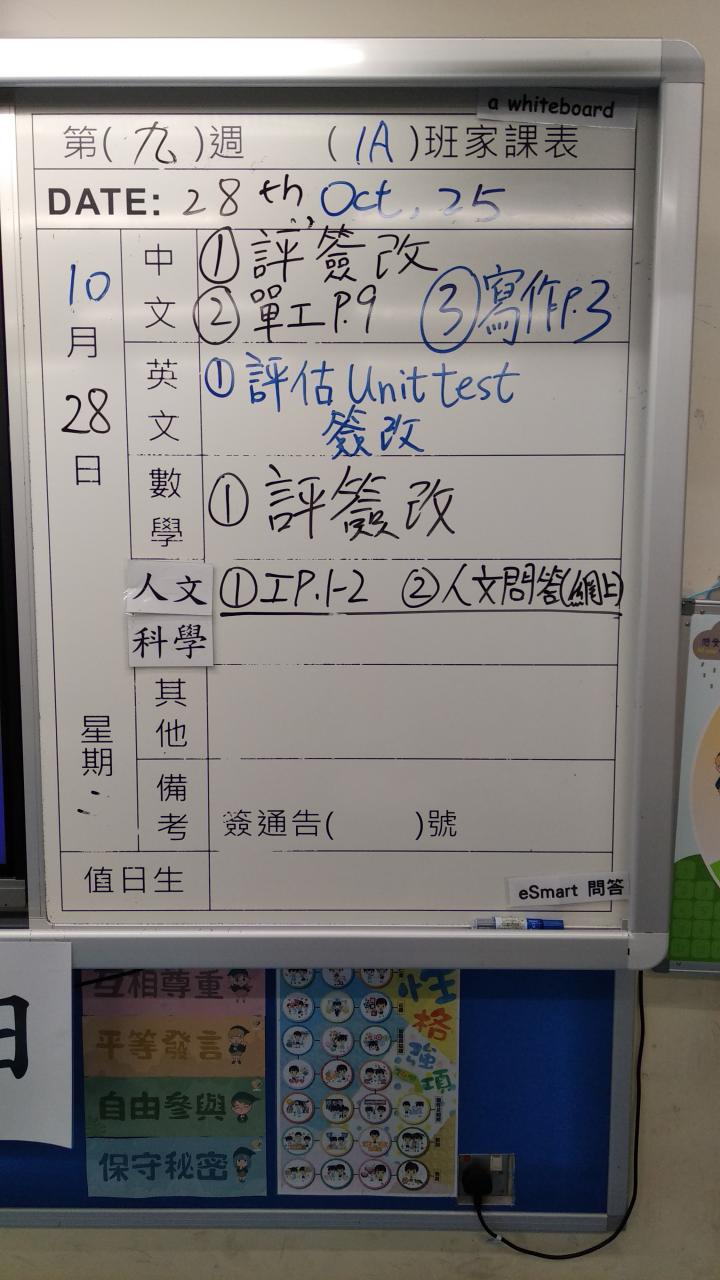 a whiteboard
第(九)週 (1A)班家課表
DATE: 28th Oct, 25
10月28日
星期二
中文
①評簽改
②單工P.9 ③寫作P.3
英文
①評估Unit test
簽改
數學
①評簽改
人文科學
①工P.1-2 ②人文問答(網上)
其他
備考
簽通告( )號
值日生
eSmart 問答
日
互相尊重
平等發言
自由參與
保守秘密
性格強項